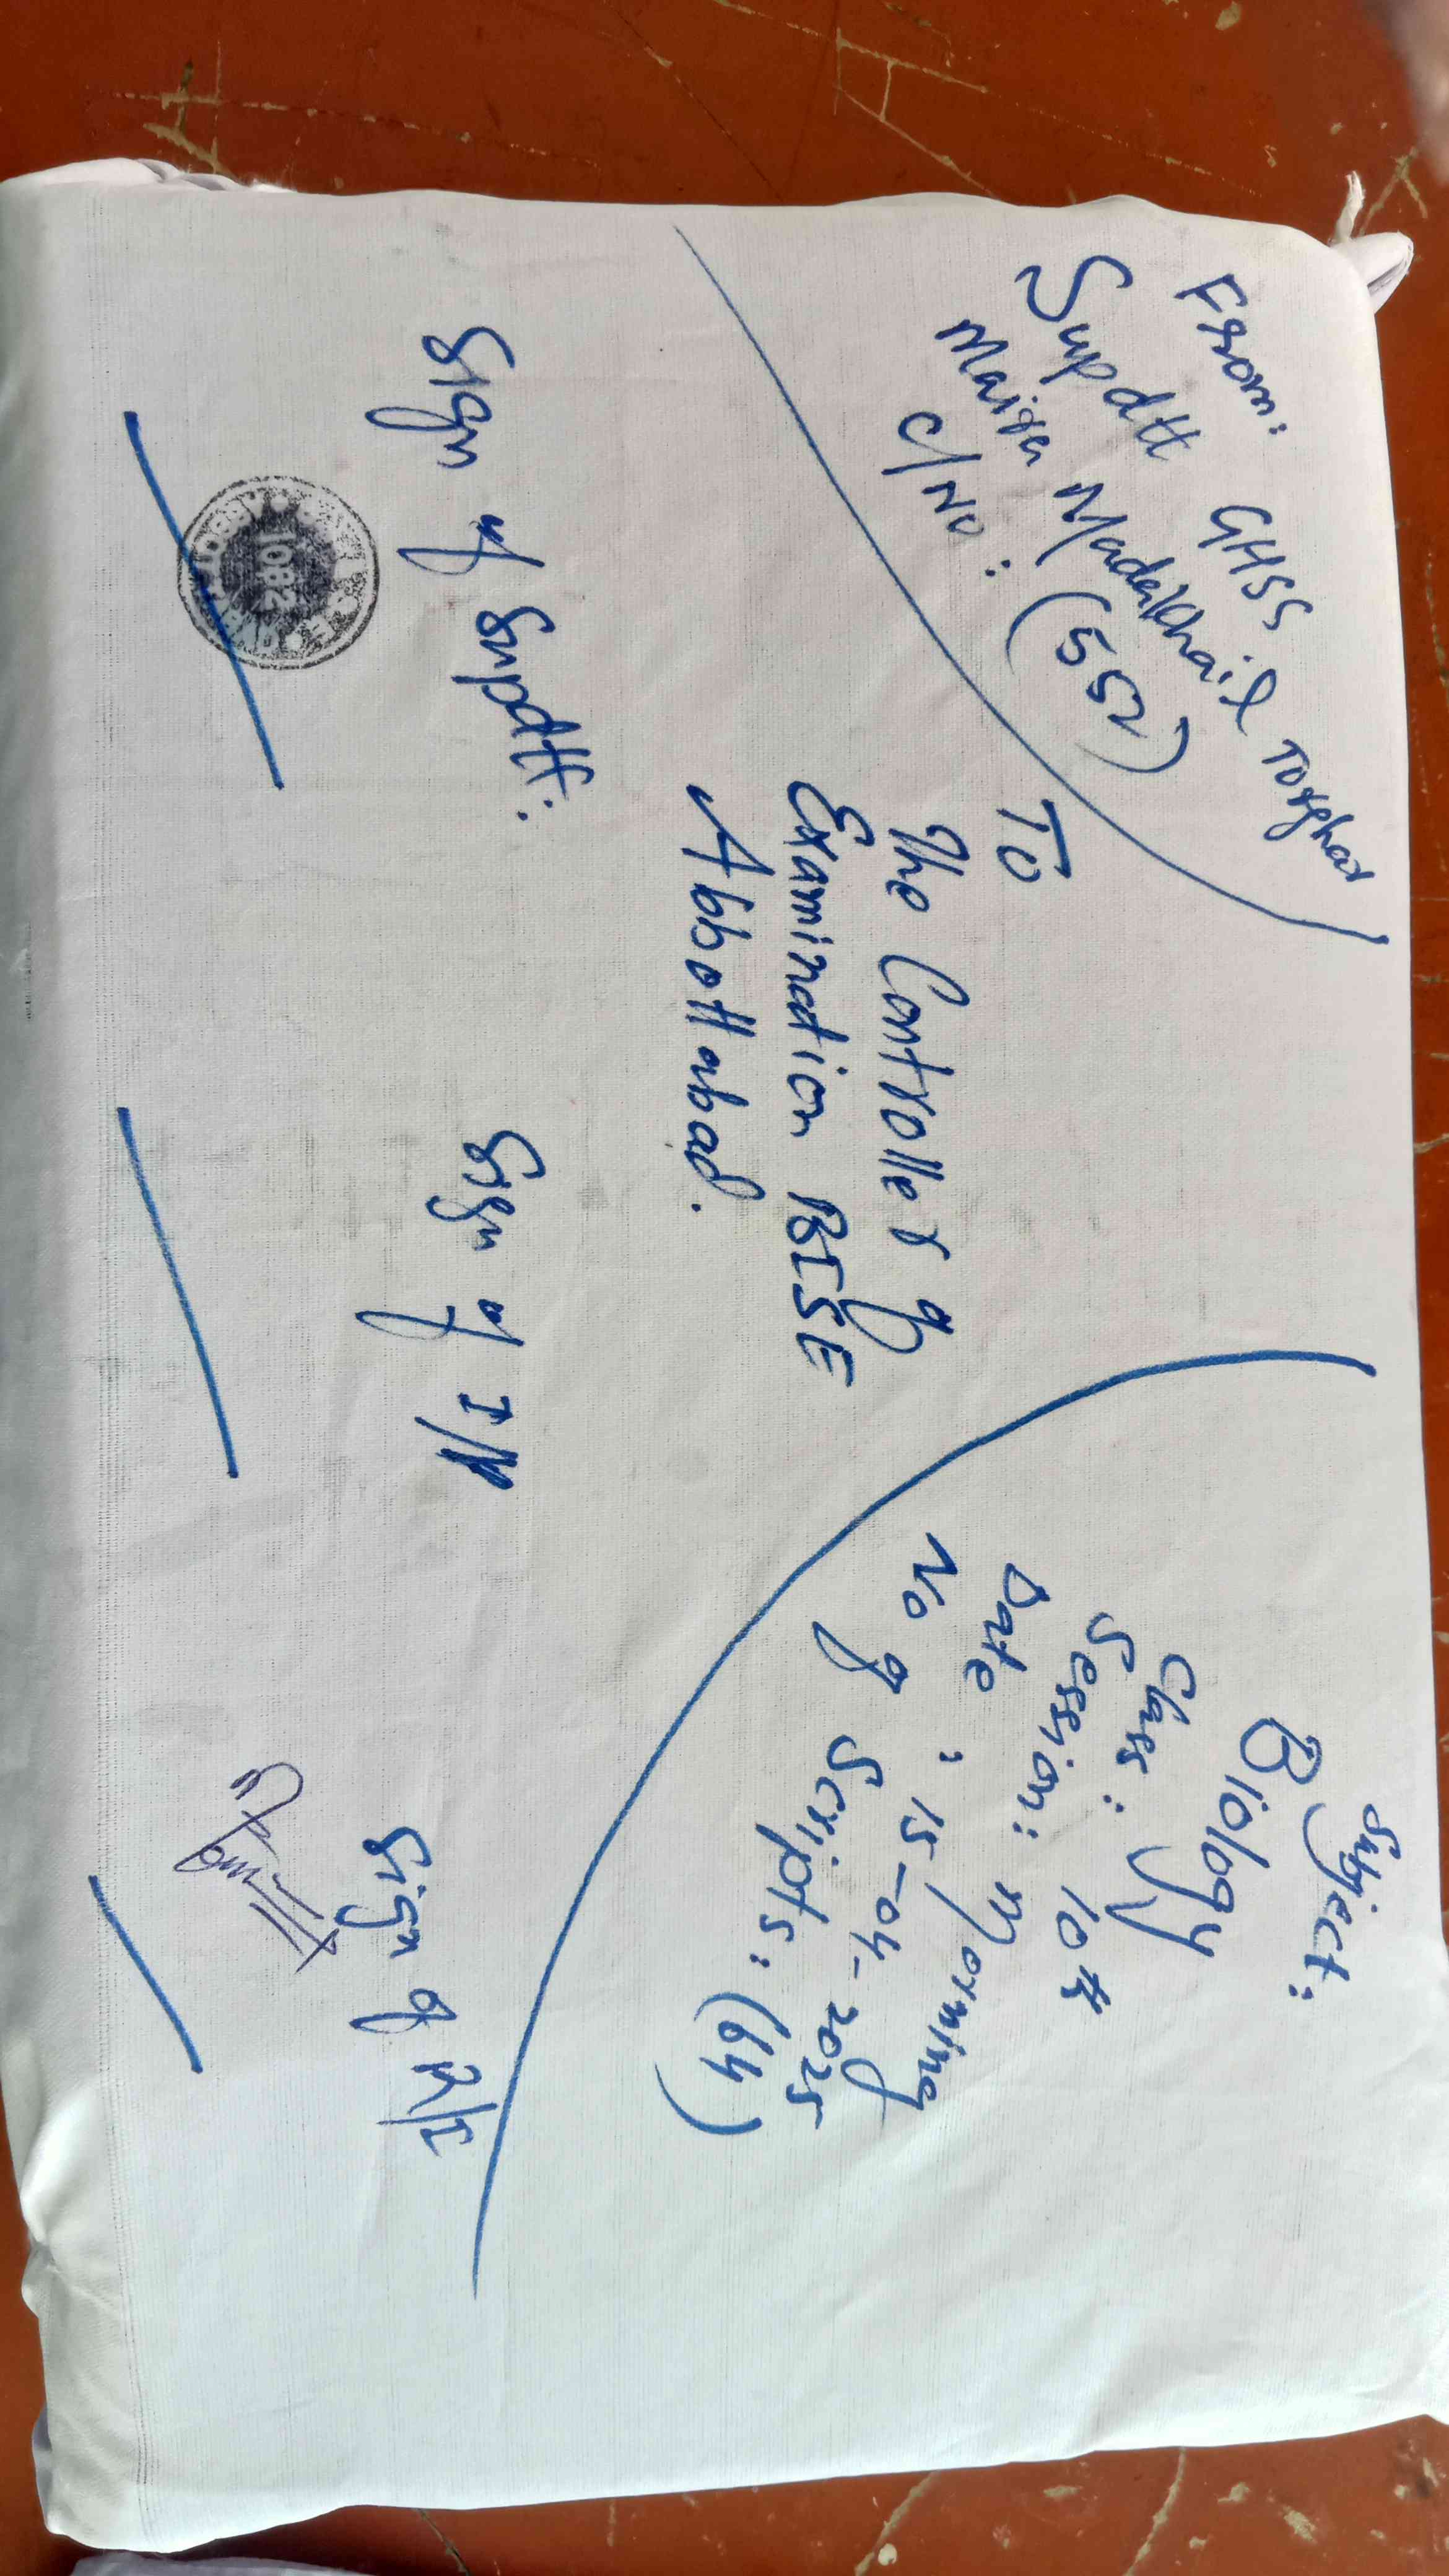 From:
Supdtt GHSS
Maira Madakhail Torghar
C/No: (552)
To
The Controller of
Examination BISE
Abbottabad.
Subject:
Biology
Class: 10th
Session: Morning
Date: 15-04-2025
No of Scripts: (64)
Sign of Supdtt:
Sign of I/V
Sign of R/I
1082